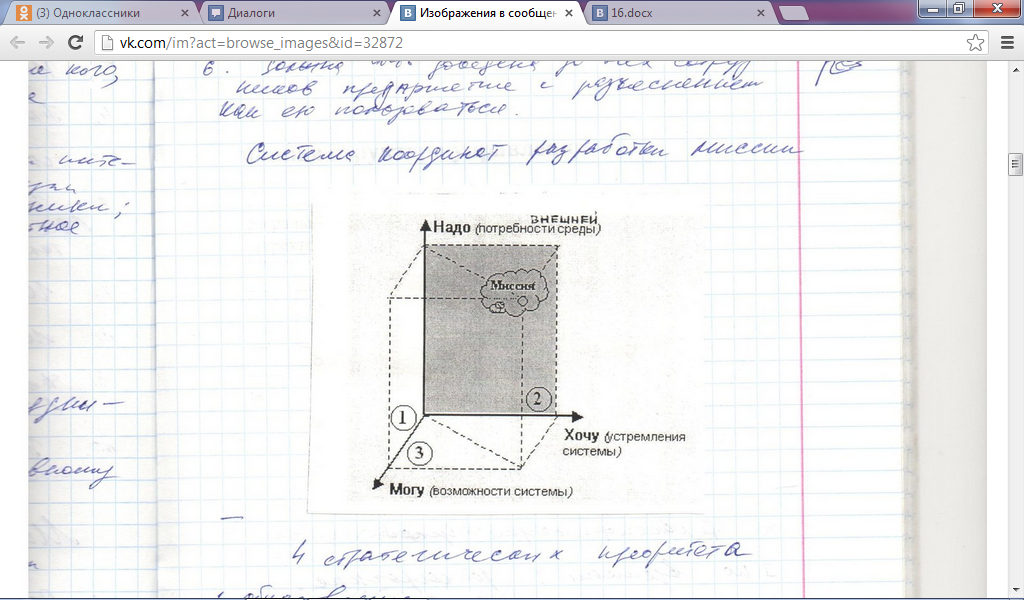 (3) Одноклассники
Диалоги
Изображения в сообщен
16.docx
vk.com/im?act=browse_images&id=32872
кого,
6.
ников предприятие с разъяснением
как ею пользоваться.
Система координат разработки миссии
ники;
ВНЕШНЕЙ
Надо (потребности среды)
Миссия
1
2
3
Хочу (устремления
системы)
Могу (возможности системы)
4 стратегических приоритета